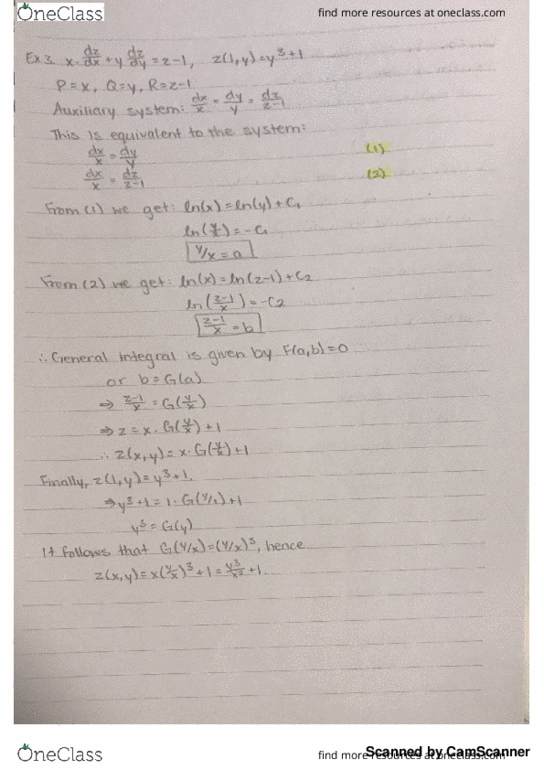 OneClass
find more resources at oneclass.com
Ex 3. x·dz/dx + y dz/dy = z-1, z(1,y)=y³+1
P=x, Q=y, R=z-1
Auxiliary system: dx/x = dy/y = dz/z-1
This is equivalent to the system:
dx/x = dy/y (1)
dx/x = dz/z-1 (2)
From (1) we get: ln(x)=ln(y)+C₁
ln(y/x)=-C₁
y/x=a
From (2) we get: ln(x)=ln(z-1)+C₂
ln(z-1/x)=-C₂
z-1/x=b
∴ General integral is given by F(a,b)=0
or b=G(a)
⇒ z-1/x = G(y/x)
⇒ z = x·G(y/x)+1
∴ z(x,y)= x·G(y/x)+1
Finally, z(1,y)=y³+1.
⇒ y³+1=1·G(y/1)+1
y³=G(y)
It follows that G(y/x)=(y/x)³, hence
z(x,y)=x(y/x)³+1=y³/x²+1.
OneClass
find more resources at oneclass.com
Scanned by CamScanner